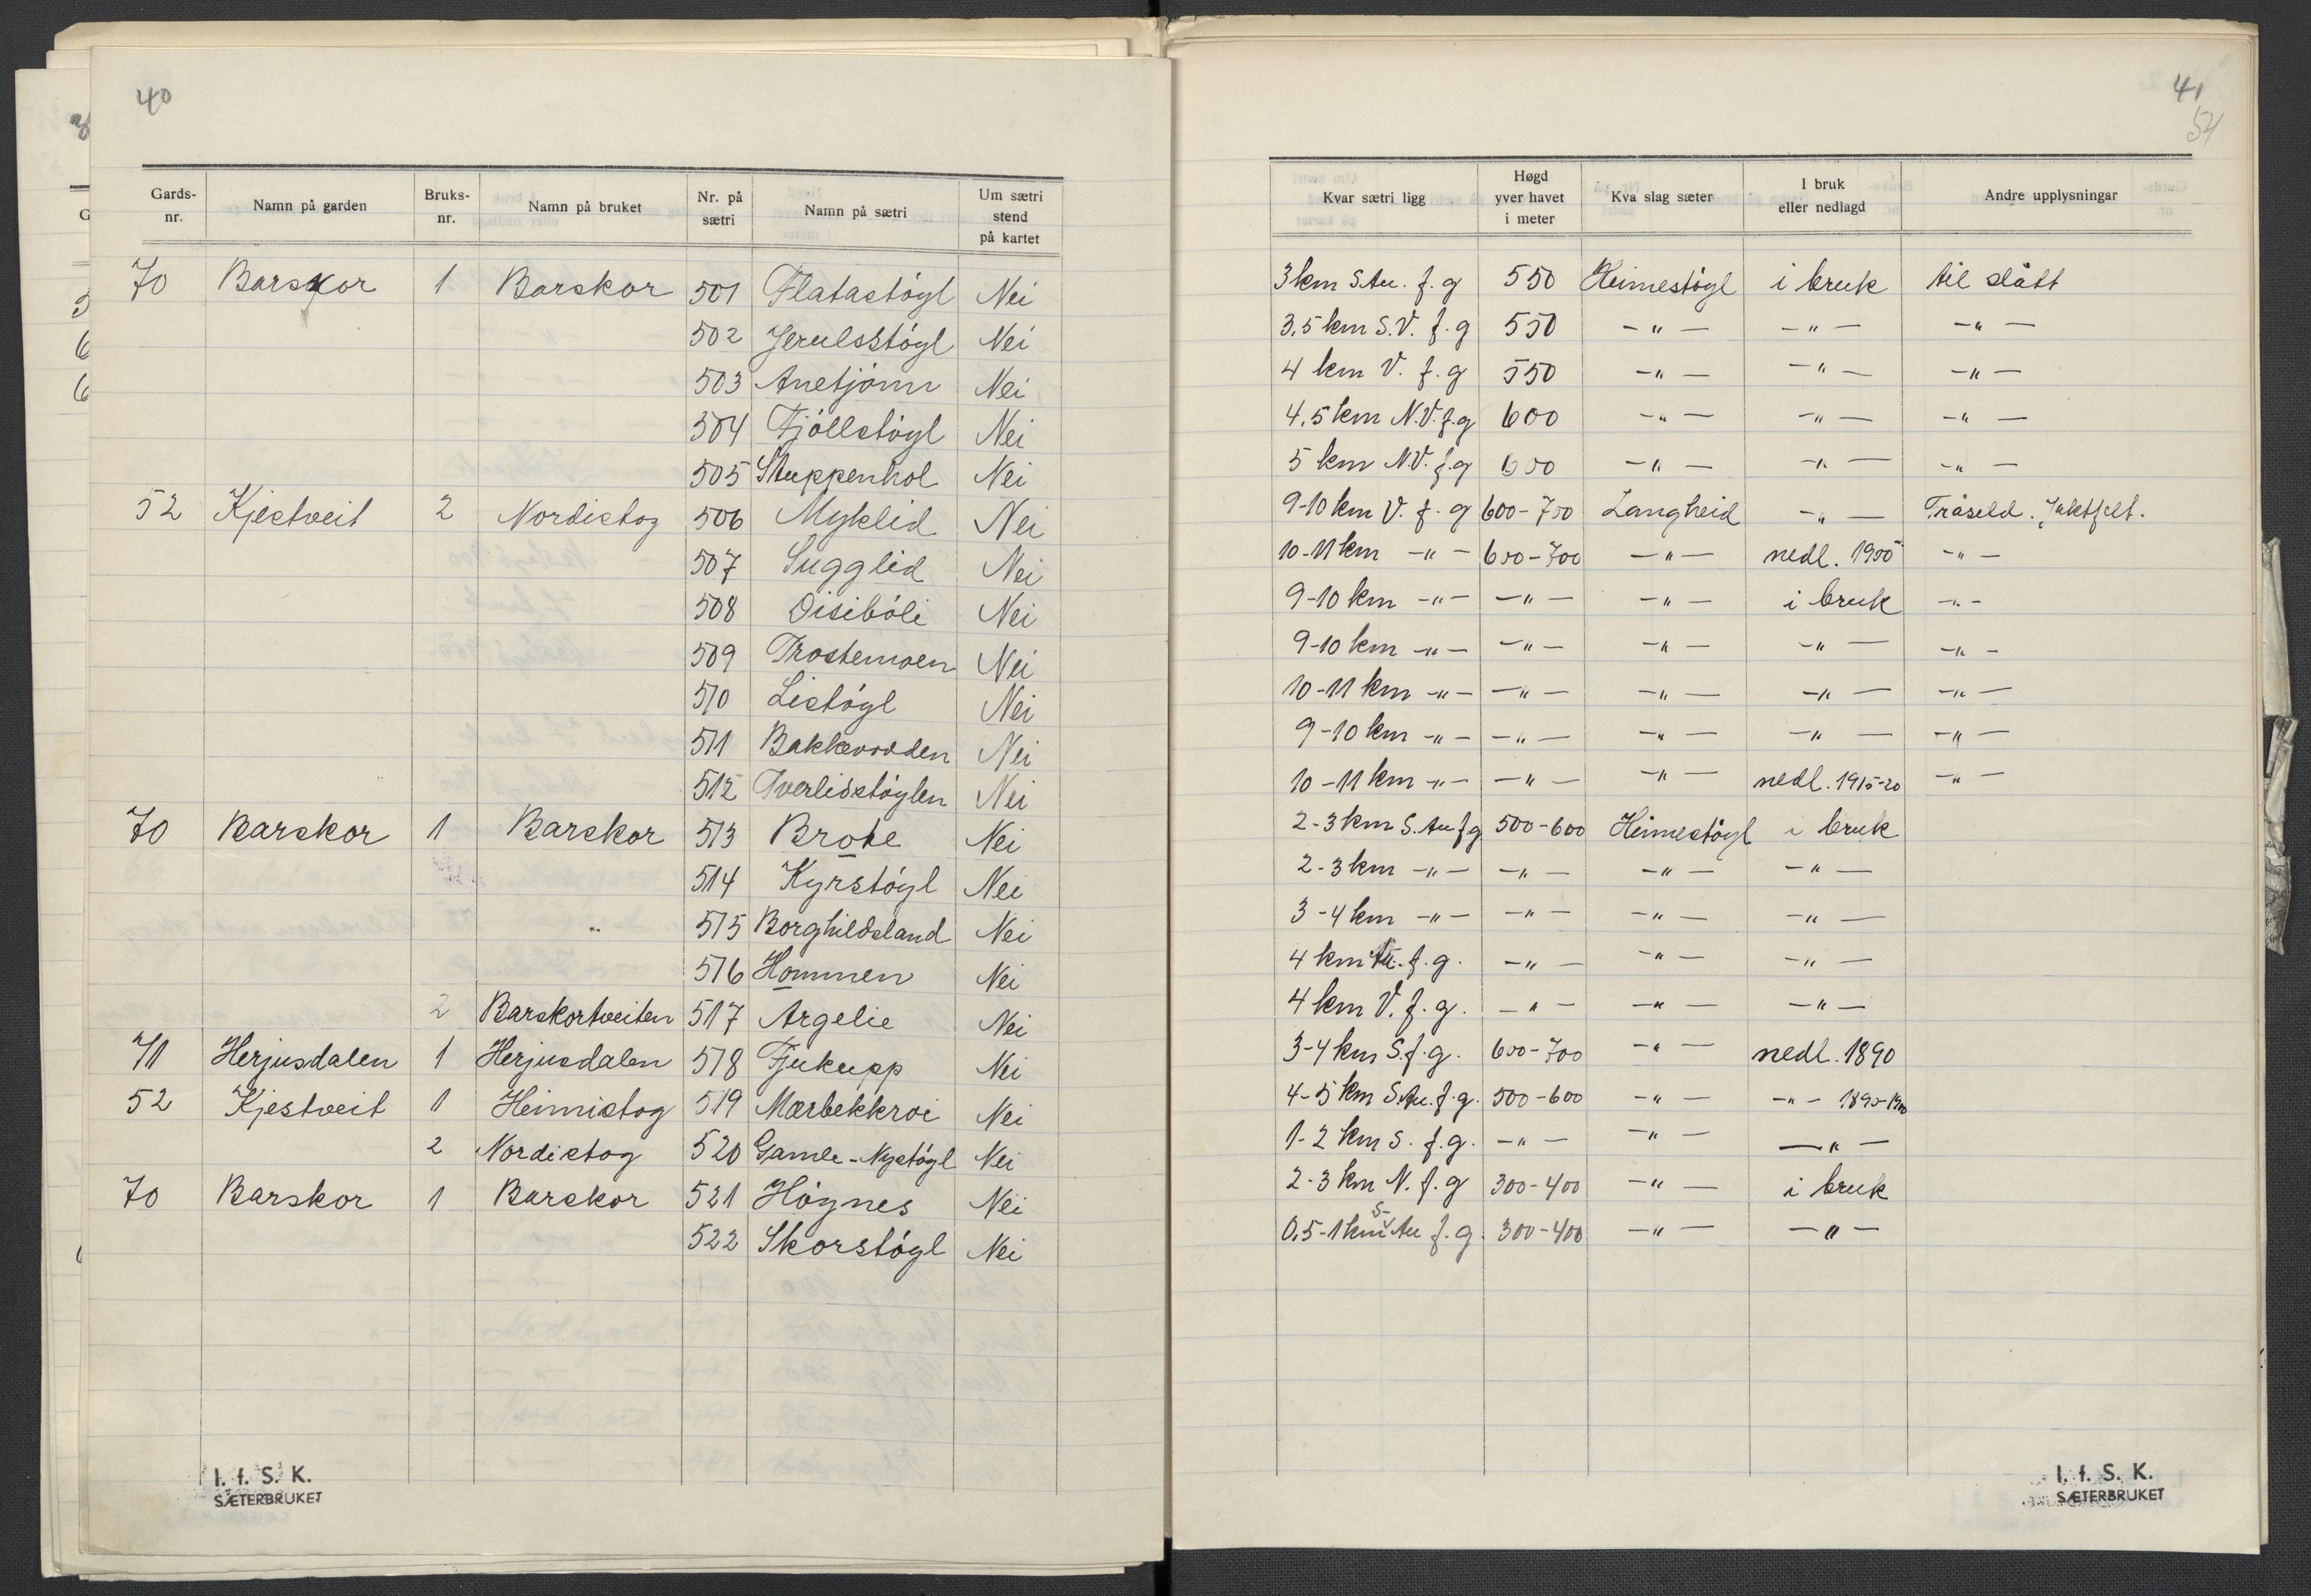 40
Gards-nr. Namn på garden Bruks-nr. Namn på bruket Nr. på sætri Namn på sætri Um sætri stend på kartet
70 Barskor 1 Barskor 501 Flatastøyl Nei
502 Jerulsstøyl Nei
503 Anetjønn Nei
504 Fjøllstøyl Nei
505 Stuppenhol Nei
52 Kjestveit 2 Nordistog 506 Myklid Nei
507 Sugglid Nei
508 Oisibøli Nei
509 Trostemoen Nei
510 Listøyl Nei
511 Bakkevodden Nei
512 Tverlisstøylen Nei
70 Barskor 1 Barskor 513 Brote Nei
514 Kyrstøyl Nei
" 515 Borghildsland Nei
516 Hommen Nei
2 Barskortveiten 517 Argelie Nei
71 Herjusdalen 1 Herjusdalen 518 Fjukupp Nei
52 Kjestveit 1 Heimistog 519 Mærbekkroi Nei
2 Nordistog 520 Gamle-Nystøyl Nei
70 Barskor 1 Barskor 521 Høynes Nei
522 Skorstøyl Nei
I. f. S. K.
SÆTERBRUKET
41
54
Kvar sætri ligg Høgd yver havet i meter Kva slag sæter I bruk eller nedlagd Andre upplysningar
3 km S.Au. f. g 550 Heimestøyl i bruk til slått
3,5 km S.V. f. g 550 -"- -"- -"-
4 km V. f. g 550 -"- -"- -"-
4,5 km N.V. f. g 600 -"- -"- -"-
5 km N.V. f. g 600 -"- -"- -"-
9-10 km V. f. g 600-700 Langheid -"- Fråseld. Jaktfelt.
10-11 km -"- 600-700 -"- nedl. 1900 -"-
9-10 km -"- -"- -"- i bruk -"-
9-10 km -"- -"- -"- -"- -"-
10-11 km -"- -"- -"- -"- -"-
9-10 km -"- -"- -"- -"- -"-
10-11 km -"- -"- -"- nedl. 1915-20 -"-
2-3 km S.Au f g 500-600 Heimestøyl i bruk
2-3 km -"- -"- -"- -"-
3-4 km -"- -"- -"- -"-
4 km Au. f. g. -"- -"- -"-
4 km V. f. g. -"- -"- -"-
3-4 km S. f. g. 600-700 -"- nedl. 1890
4-5 km S.Au. f. g. 500-600 -"- -"- 1895-1900
1-2 km S. f. g. -"- -"- -"-
2-3 km N. f. g 300-400 -"- i bruk
0,5-1 km S-Au f. g. 300-400 -"- -"-
I. f. S. K.
SÆTERBRUKET